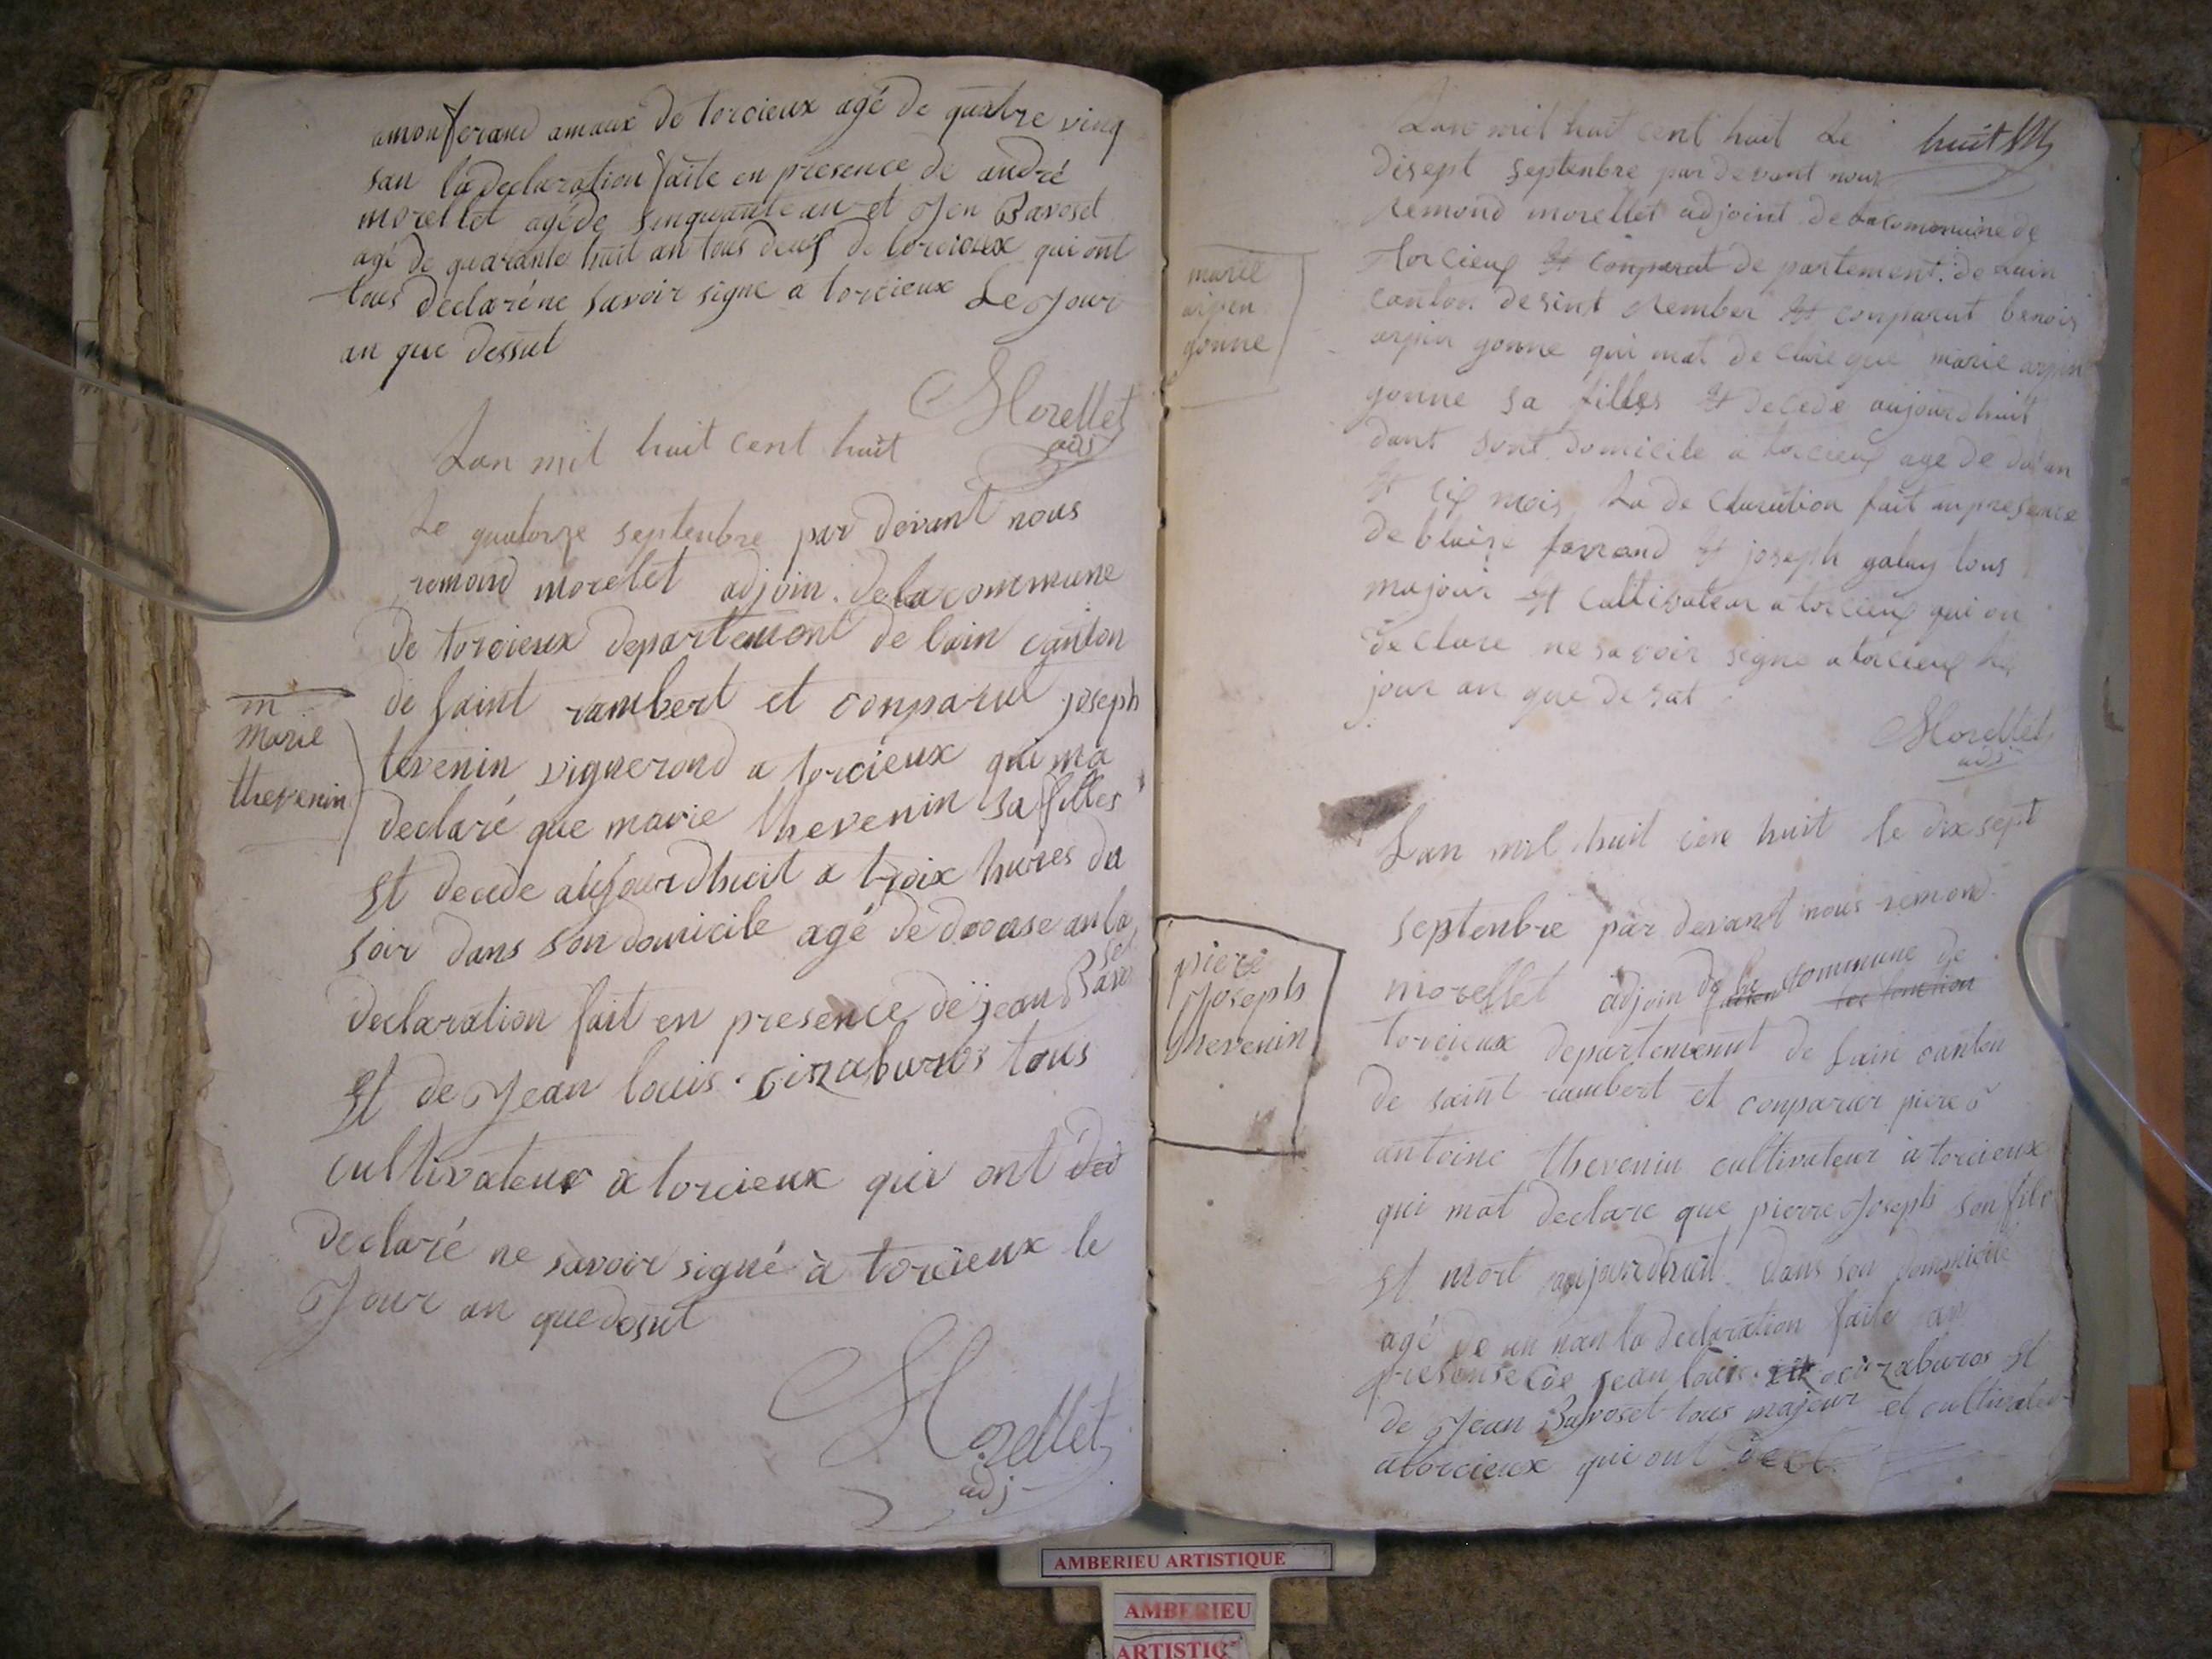 amonferand amaux de torcieux agé de quatre ving
san la declaration faite en presence de andré
morellet agé de sinquante an et Jen Bavoset
agé de quarante huit an tous deus de torcieux qui ont
tous declaré ne savoir signe a torcieux Le Jour
an que dessut
Morellet
adj
Lan mil huit cent huit
Le quatorze septenbre par devant nous
remond morelet adjoin de la commune
de torcieux departement de lain canton
de saint rambert et conparut joseph
tevenin vignerond a torcieux qui ma
declaré que marie thevenin sa filles
st decede aujourdhuit a troix hures du
soir dans son domicile agé de doouse an la
declaration fait en presence de jean Bavo
set
st de Jean louis cizaburos tous
cultivateur a torcieux qui ont
declaré ne savoir signé à torcieux le
Jour an que desut
Morellet
adj
m
marie
thevenin
huit
Lan mil huit cent huit Le
disept septenbre par devant nous
remond morellet adjoint de la commune de
torcieux st conparut de partement de Lain
canton de sint rember st conparut benois
arpin gonne qui mat de clare que marie arpin
gonne sa filles st decede aujourdhuit
dant sont domicile a torcieux age de
st six mois La de claration fait anpresence
de blaise farrand st joseph gabuy tous
majour st cultivateur a torcieux qui on
de clare ne savoir signe a torcieux
jour an que de sat
Morellet
adj
marie
arpen
gonne
Lan mil huit cen huit le dix sept
septenbre par devant nous remond
morellet adjoin de la commune de
torcieux departement de lain canton
de saint rambert et conparur piere
antoine thevenin cultivateur a torcieux
qui mat declare que pierre Joseph son fils
st mort aujourdhuit dans son domicile
agé de un nan la declaration faite an
presense de jean louis cizaburos st
de Jean Bavoset tous majeur et cultivateur
a torcieux qui ont decl
piere
Joseph
thevenin
AMBERIEU ARTISTIQUE
AMBERIEU
ARTISTIQ